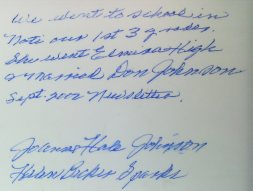 We went to school in
Noti our 1st 3 grades.
She went Elmira High
& Married Don Johnson
Sept. 2002 Newsletter.
Joanna Hale Johnson
Helen Becker Sparks